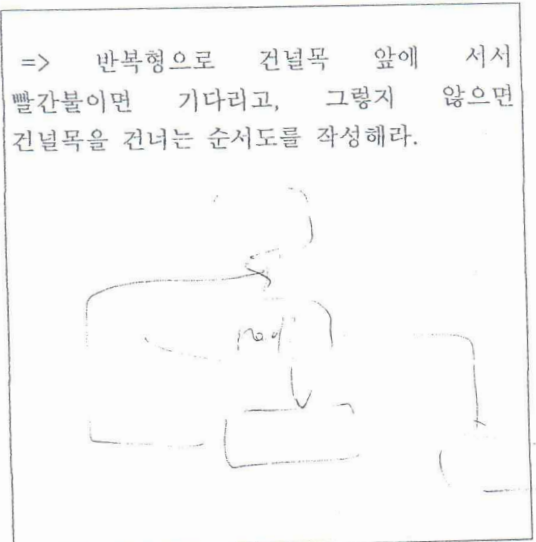 => 반복형으로 건널목 앞에 서서
빨간불이면 기다리고, 그렇지 않으면
건널목을 건너는 순서도를 작성해라.